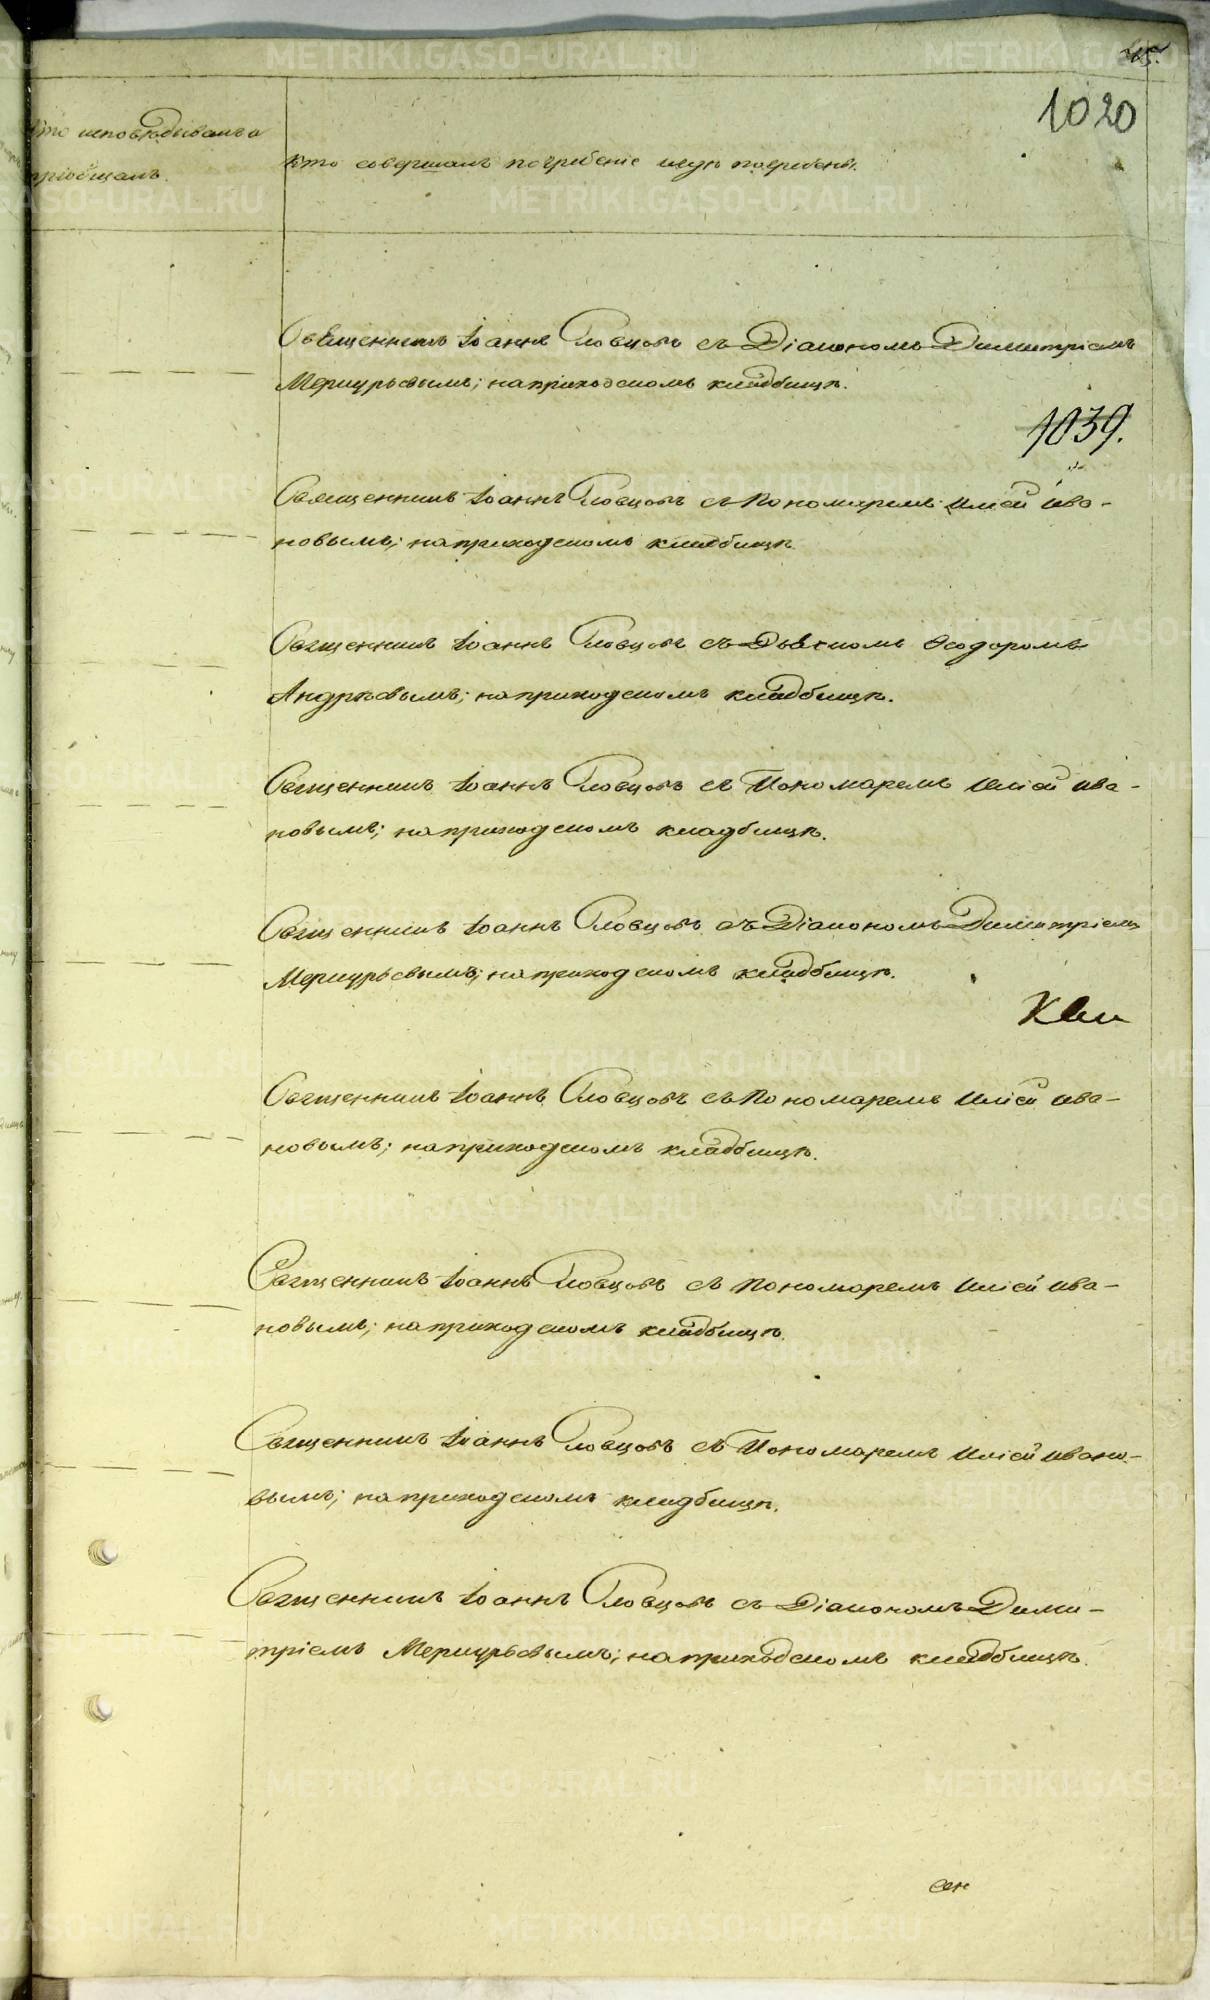 45.
1020
Кто исповѣдывалъ и
пріобщалъ.
Кто совершалъ погребеніе и гдѣ погребены.
Священникъ Іоаннъ Словцовъ съ Діакономъ Димитріемъ
Меркурьевымъ; на приходскомъ кладбищѣ.
1039.
Священникъ Іоаннъ Словцовъ съ Пономаремъ Иліей Ива-
новымъ; на приходскомъ кладбищѣ.
Священникъ Іоаннъ Словцовъ съ Дьячкомъ Ѳеодоромъ
Андрѣевымъ; на приходскомъ кладбищѣ.
Священникъ Іоаннъ Словцовъ съ Пономаремъ Иліей Ива-
новымъ; на приходскомъ кладбищѣ.
Священникъ Іоаннъ Словцовъ съ Діакономъ Димитріемъ
Меркурьевымъ; на приходскомъ кладбищѣ.
Священникъ Іоаннъ Словцовъ съ Пономаремъ Иліей Ива-
новымъ; на приходскомъ кладбищѣ.
Священникъ Іоаннъ Словцовъ съ Пономаремъ Иліей Ива-
новымъ; на приходскомъ кладбищѣ.
Священникъ Іоаннъ Словцовъ съ Пономаремъ Иліей Ивано-
вымъ; на приходскомъ кладбищѣ.
Священникъ Іоаннъ Словцовъ съ Діакономъ Дими-
тріемъ Меркурьевымъ; на приходскомъ кладбищѣ.
METRIKI.GASO-URAL.RU